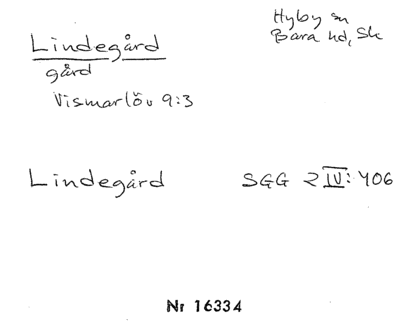 Lindegård
Hyby sn
Bara hd, Sk
gård
Vismarlöv 9:3
Lindegård SGG 2 IV: 406
Nr 16334